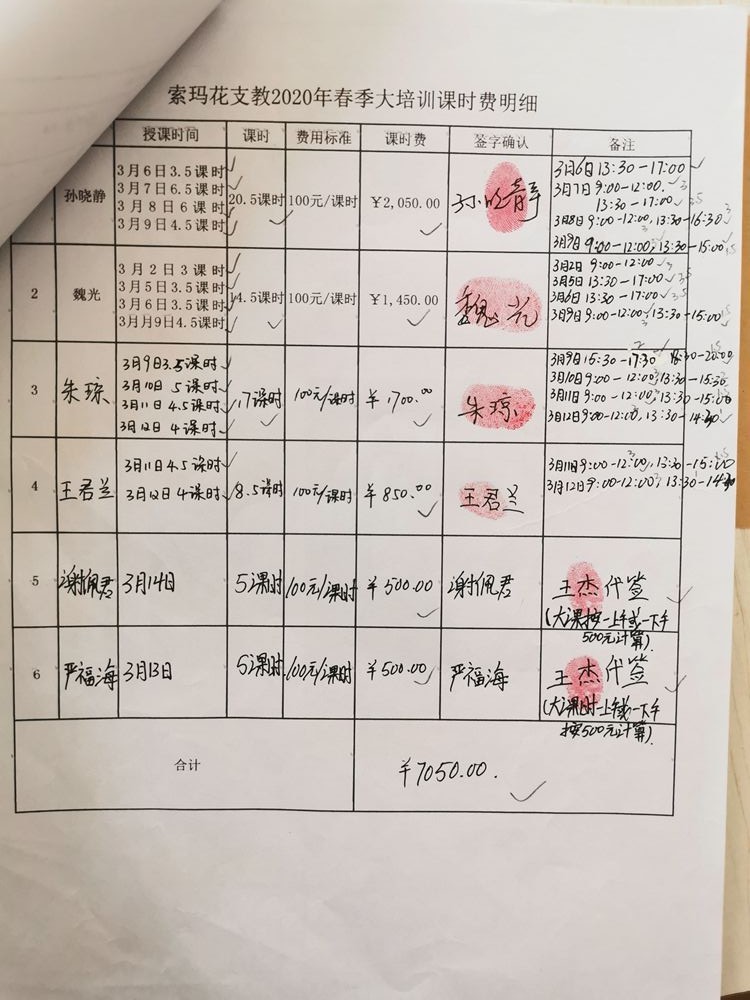 索玛花支教2020年春季大培训课时费明细
授课时间 课时 费用标准 课时费 签字确认 备注
孙晓静 3月6日3.5课时 20.5课时 100元/课时 ¥2,050.00 孙晓静 3月6日 13:30-17:00
3月7日6.5课时 3月7日 9:00-12:00.
13:30-17:00
3月8日6课时 3月8日 9:00-12:00, 13:30-16:30
3月9日4.5课时 3月9日 9:00-12:00, 13:30-15:00
2 魏光 3月2日3课时 14.5课时 100元/课时 ¥1,450.00 魏光 3月2日 9:00-12:00
3月5日3.5课时 3月5日 13:30-17:00
3月6日3.5课时 3月6日 13:30-17:00
3月月9日4.5课时 3月9日 9:00-12:00, 13:30-15:00
3 朱琼 3月9日3.5课时 17课时 100元/课时 ¥1700.00 朱琼 3月9日 15:30-17:30 18:30-20:00
3月10日 5课时 3月10日 9:00-12:00, 13:30-15:30
3月11日 4.5课时 3月11日 9:00-12:00, 13:30-15:00
3月12日 4课时 3月12日 9:00-12:00, 13:30-14:30
4 王君兰 3月11日4.5课时 8.5课时 100元/课时 ¥850.00 王君兰 3月11日 9:00-12:00, 13:30-15:00
3月12日4课时 3月12日 9:00-12:00, 13:30-14:30
5 谢佩君 3月14日 5课时 100元/课时 ¥500.00 谢佩君 王杰代签
(大课按一上午或一下午
500元计算).
6 严福海 3月13日 5课时 100元/课时 ¥500.00 严福海 王杰代签
(大课时一上午或一下午
按500元计算).
合计 ¥7050.00.